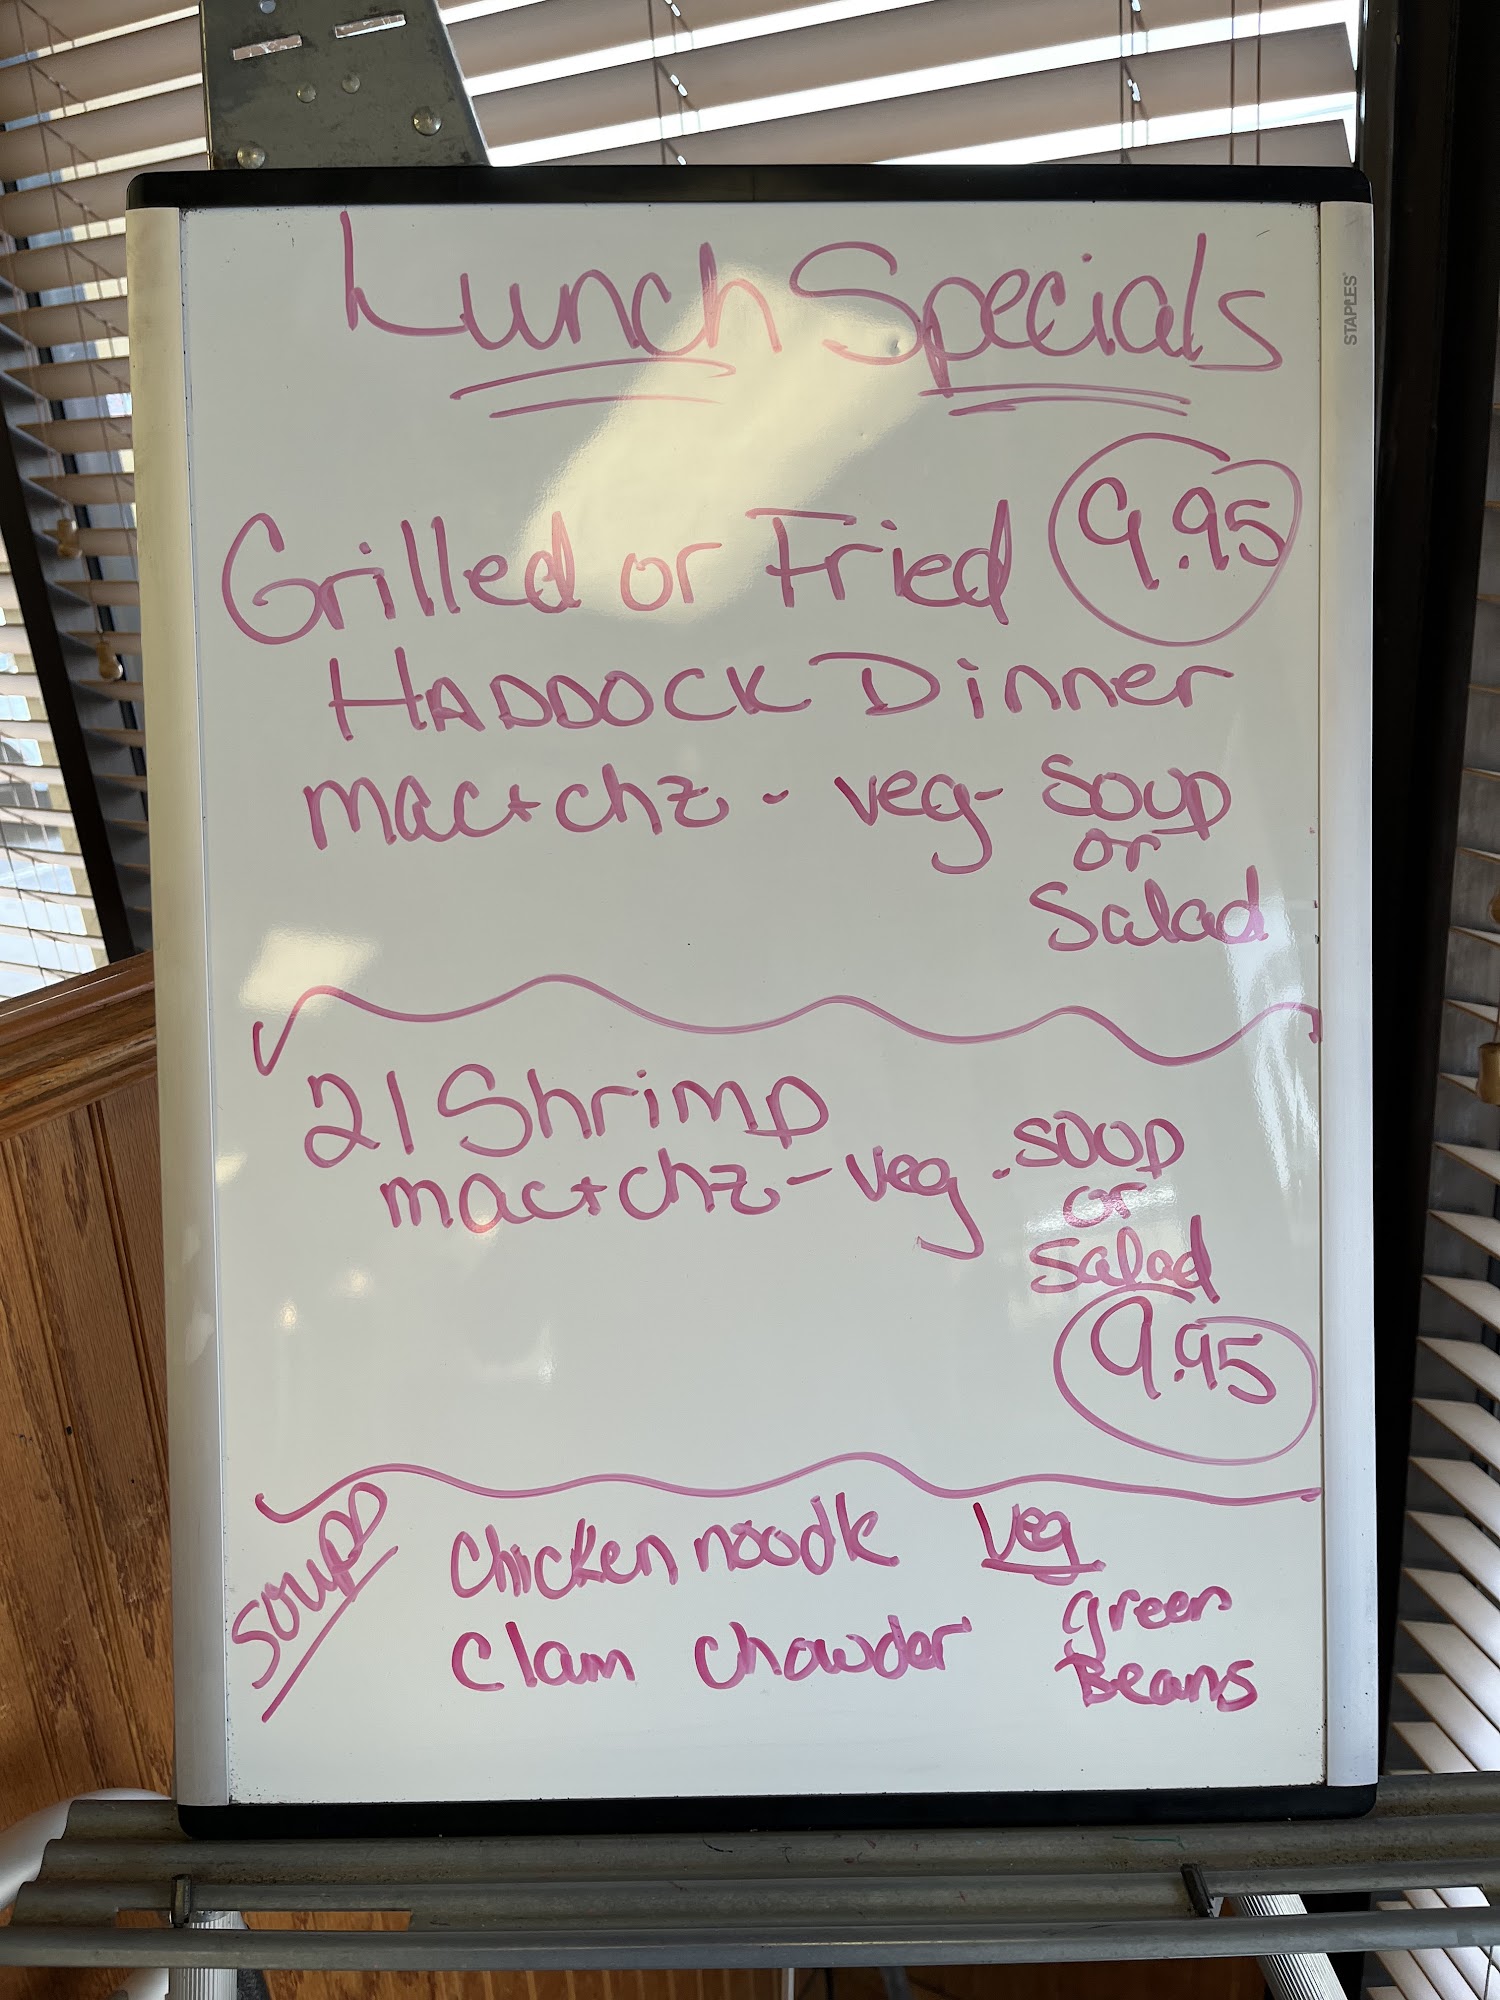 Lunch Specials
Grilled or Fried 9.95
HADDOCK Dinner
mac + chz - veg - soup
or
Salad
21 Shrimp
mac + chz - veg - soup
or
salad
9.95
Soups
Chicken noodle
Clam Chowder
Veg
green
Beans
STAPLES